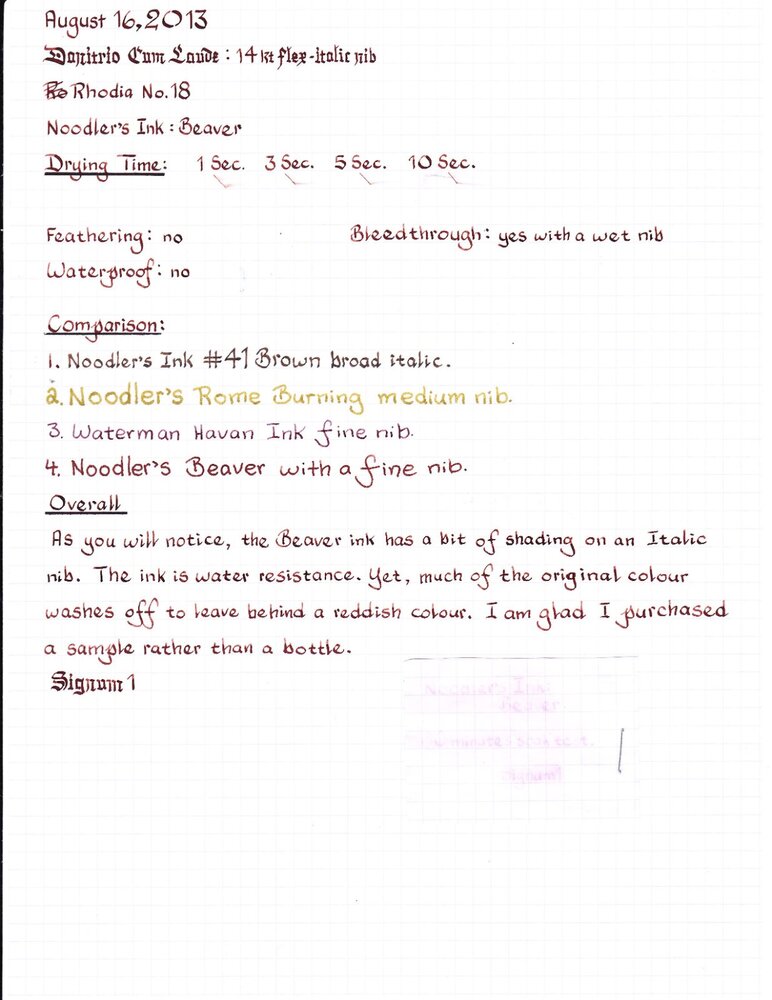 August 16, 2013
Danitrio Cum Laude: 14 kt flex-italic nib
Rhodia No. 18
Noodler's Ink: Beaver
Drying Time: 1 Sec. 3 Sec. 5 Sec. 10 Sec.
Feathering: no Bleedthrough: yes with a wet nib
Waterproof: no
Comparison:
1. Noodler's Ink #41 Brown broad italic.
2. Noodler's Rome Burning medium nib.
3. Waterman Havan Ink fine nib.
4. Noodler's Beaver with a fine nib.
Overall
As you will notice, the Beaver ink has a bit of shading on an Italic
nib. The ink is water resistance. Yet, much of the original colour
washes off to leave behind a reddish colour. I am glad I purchased
a sample rather than a bottle.
Signum 1
Noodler's Ink
Beaver
minutes
Signum1